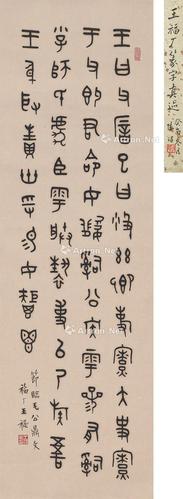 王曰父㕌已曰及兹卿事寮大史寮
于父即尹命女𤔲公族雩參有𤔲
小子師氏虎臣雩朕褻事以乃族干吾
王身取賁卅寽易女秬鬯
節臨毛公鼎文
福厂王禔
王福厂篆字真迹